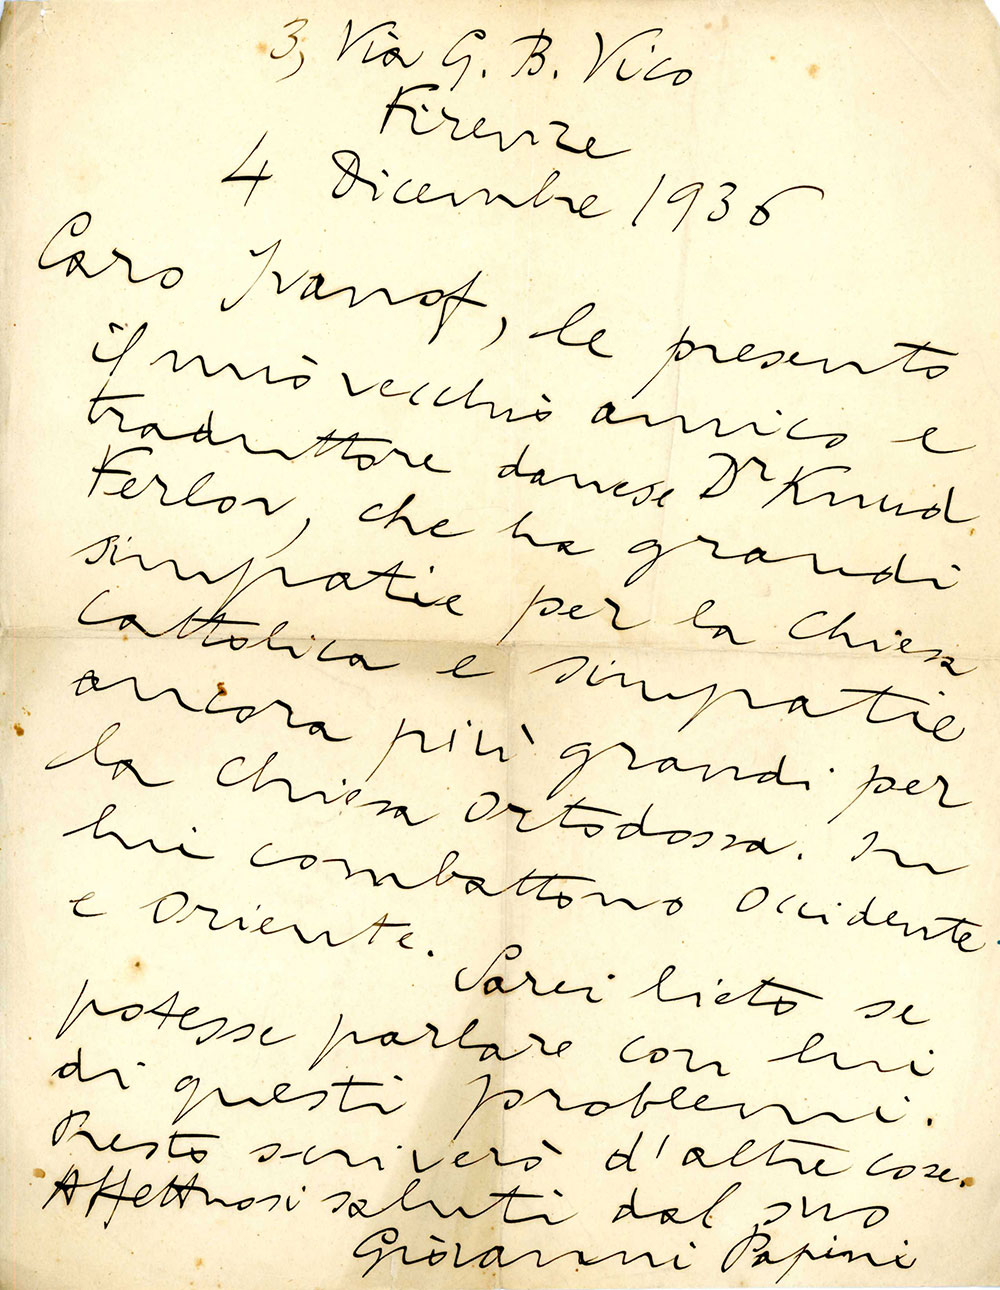 3, Via G. B. Vico
Firenze
4 Dicembre 1936
Caro Ivanof, le presento
il mio vecchio amico e
traduttore danese Dr Knud
Ferlov, che ha grandi
simpatie per la Chiesa
Cattolica e simpatie
ancora più grandi per
la Chiesa Ortodossa. In
lui combattono Occidente
e Oriente.
Sarei lieto se
potesse parlare con lui
di questi problemi.
Presto scriverò d'altre cose.
Affettuosi saluti dal suo
Giovanni Papini